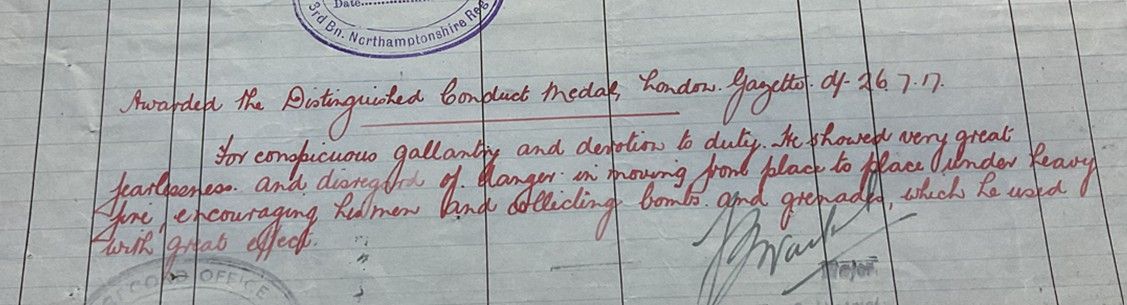 Date..............
3rd Bn. Northamptonshire Reg
Awarded the Distinguished Conduct Medal, London. Gazette. df- 26.7.17.
For conspicuous gallantry and devotion to duty. He showed very great
fearlessness. and disregard of danger in moving from place to place under heavy
fire, encouraging his men and collecting bombs. and grenades, which he used
with great effect.
Major
RECORD OFFICE